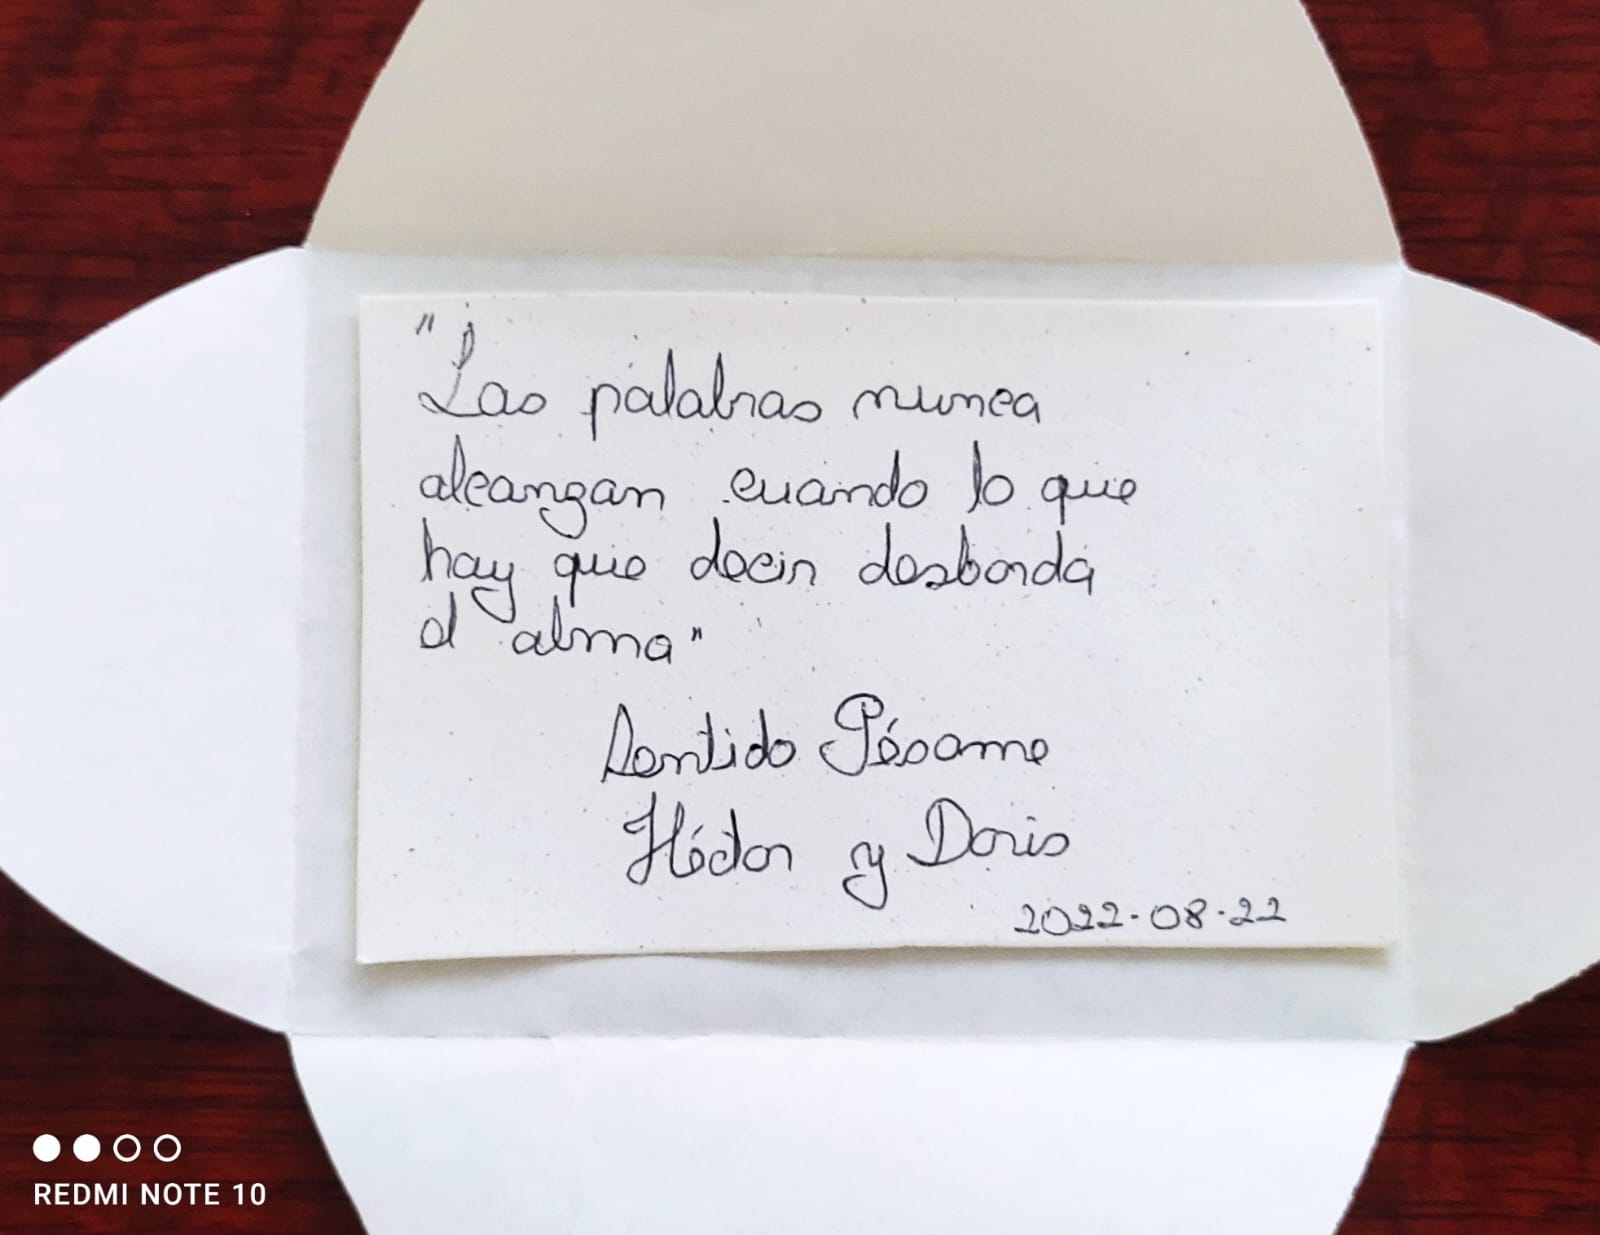 "Las palabras nunca
alcanzan cuando lo que
hay que decir desborda
el alma"
Sentido Pésame
Héctor y Doris
2022-08-22
REDMI NOTE 10